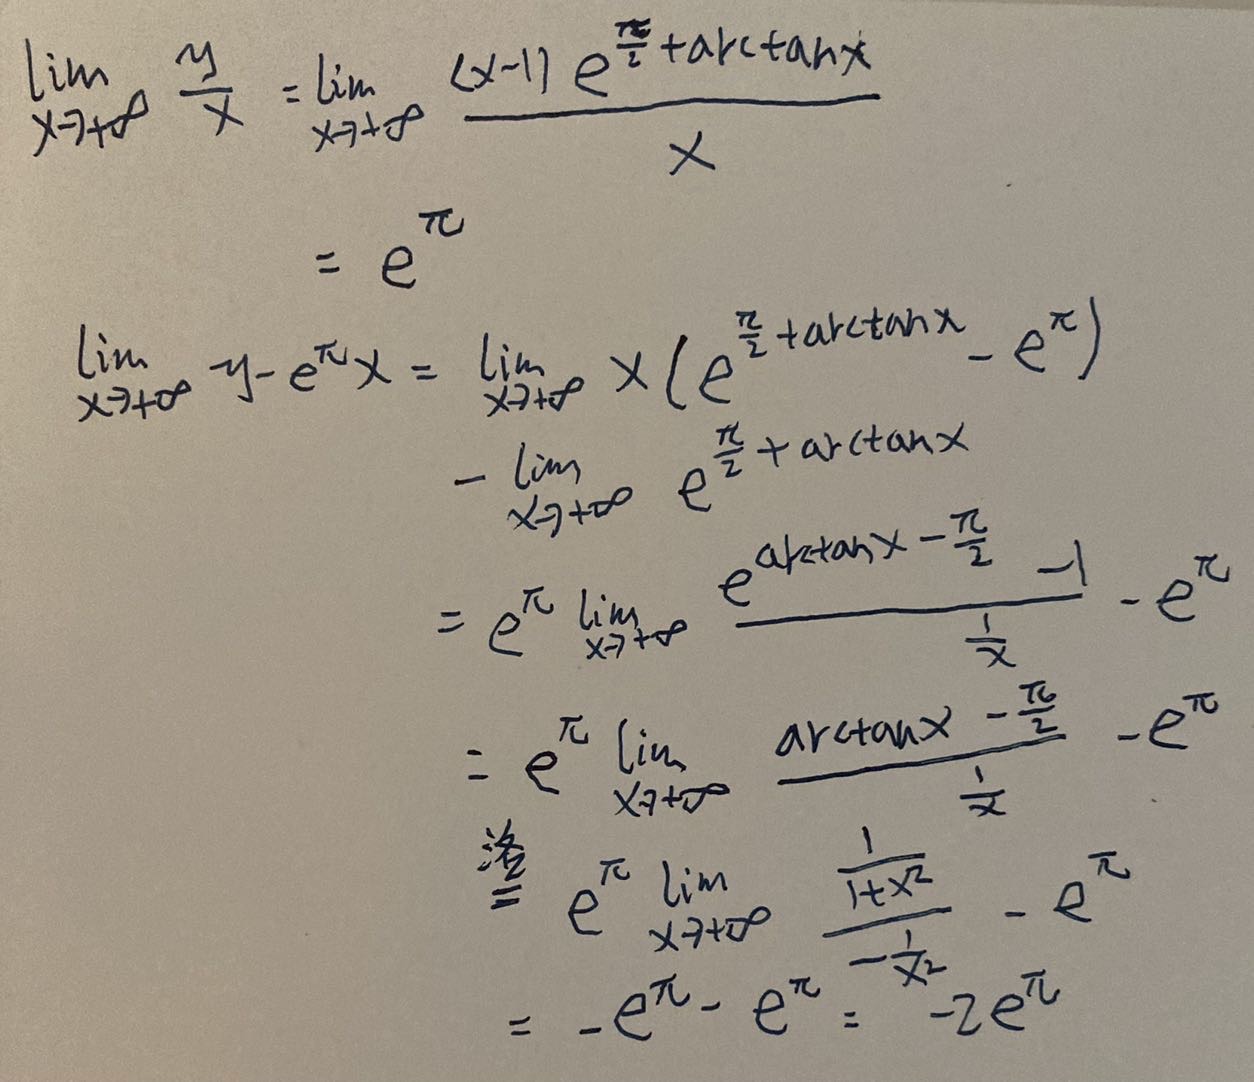 lim_{x→+∞} y/x = lim_{x→+∞} (x-1)e^{π/2+arctanx}/x
= e^π
lim_{x→+∞} y-e^π x = lim_{x→+∞} x(e^{π/2+arctanx} - e^π)
- lim_{x→+∞} e^{π/2+arctanx}
= e^π lim_{x→+∞} (e^{arctanx-π/2} -1)/(1/x) - e^π
= e^π lim_{x→+∞} (arctanx - π/2)/(1/x) - e^π
洛= e^π lim_{x→+∞} (1/(1+x²))/(-1/x²) - e^π
= -e^π - e^π = -2e^π